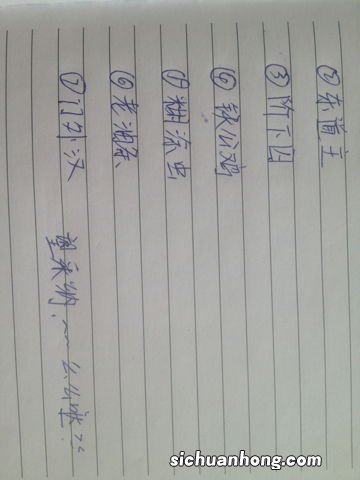 ②东道主
③阶下囚
④铁公鸡
⑤糊涂虫
⑥老油条
⑦门外汉
望采纳.~~么么哒~~
sichuanhong.com